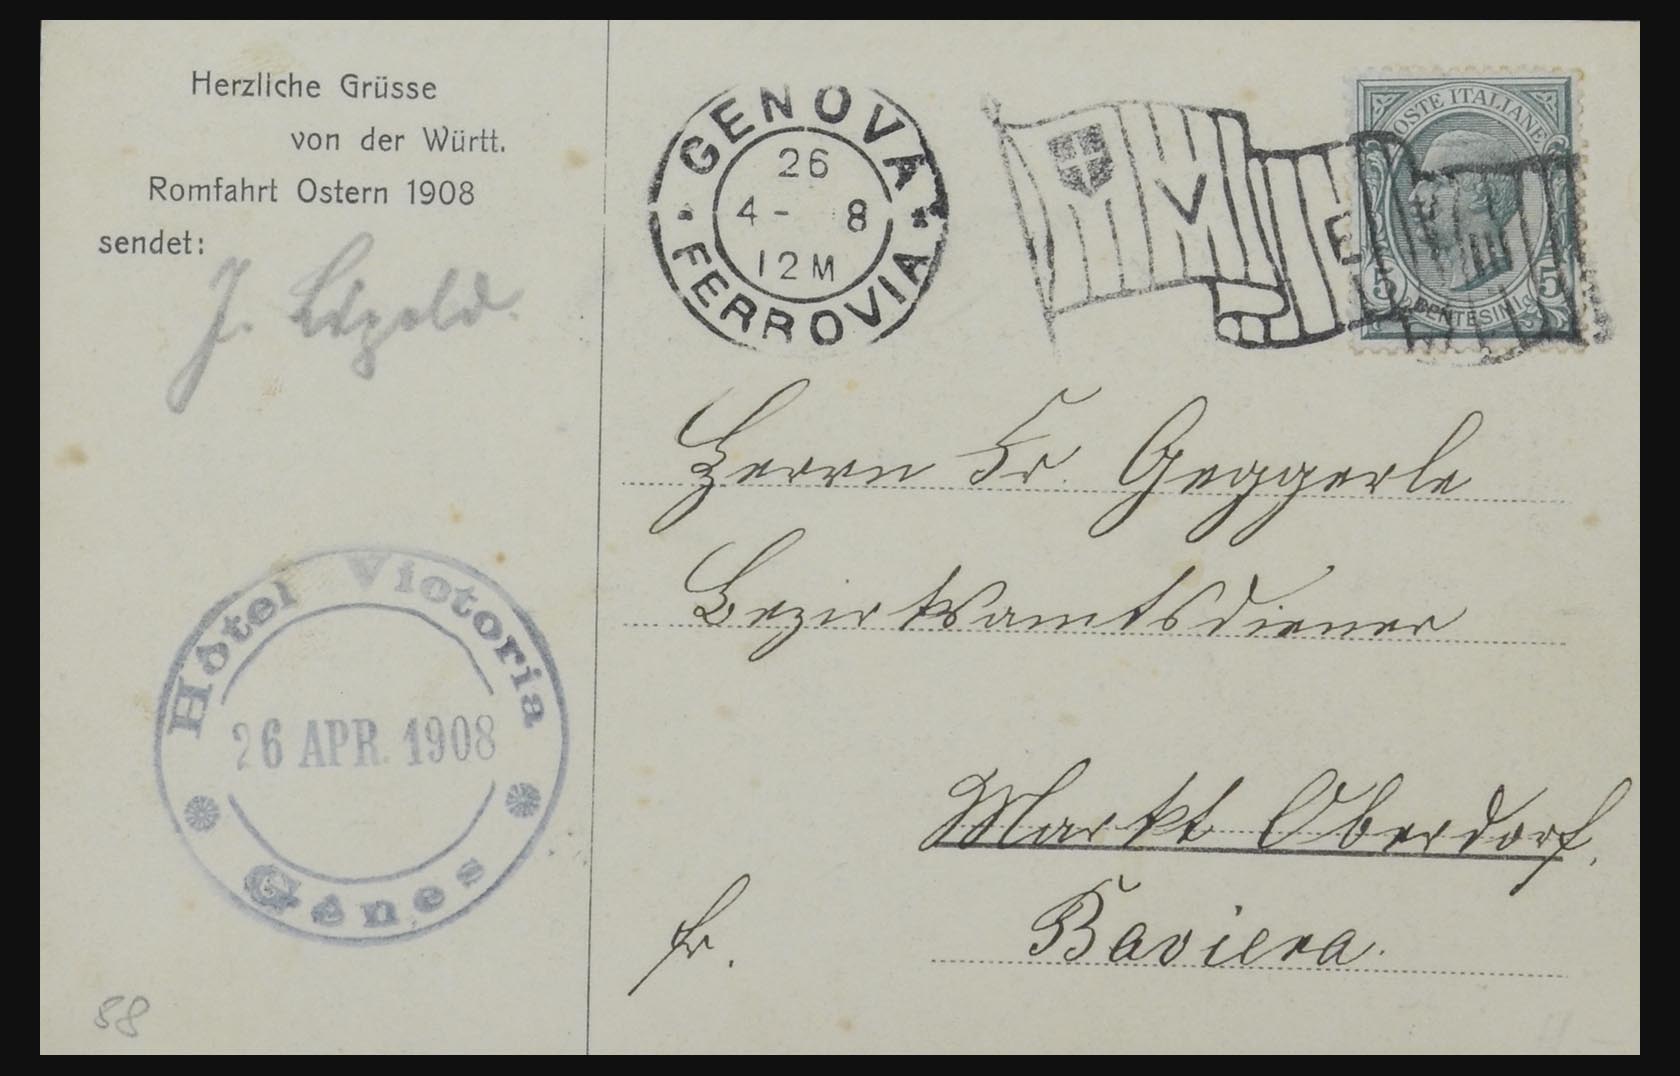 Herzliche Grüsse
von der Württ.
Romfahrt Ostern 1908
sendet:
J.
GENOVA
26
4 - 8
12M
FERROVIA
POSTE ITALIANE
5 5
CENTESIMI
Herrn Fr. Geggerle
Bezirksamtsdiener
Markt Oberdorf.
fr. Baviera.
Hôtel Victoria
26 APR. 1908
Gênes
88